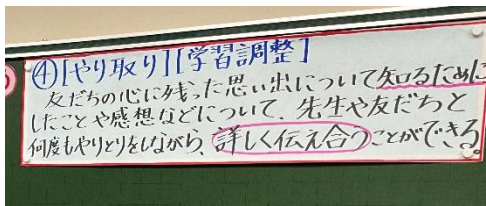 ④[やり取り][学習調整]
友だちの心に残った思い出について知るために
したことや感想などについて、先生や友だちと
何度もやりとりをしながら、詳しく伝え合うことができる。